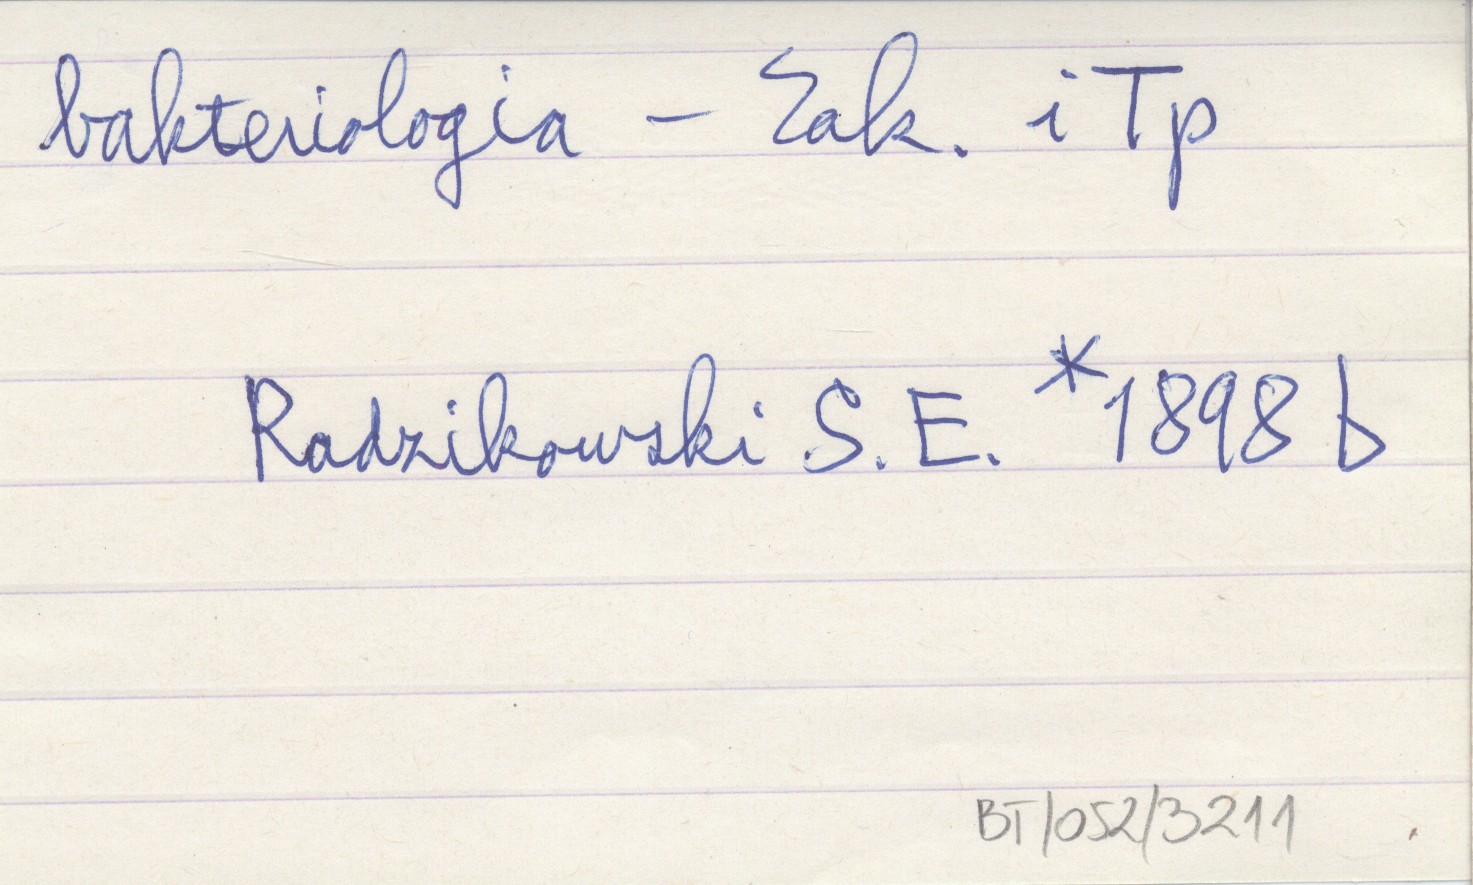 bakteriologia – Zak. i Tp
Radzikowski S. E. *1898 b
BT/052/3211